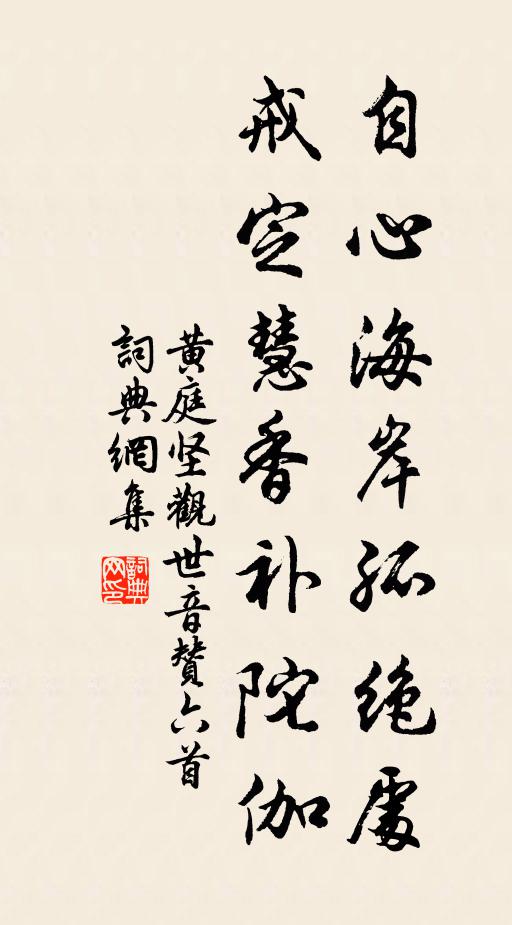 自心海岸孤绝處
戒定慧香补陀伽
黄庭坚觀世音贊六首
詞典網集
詞典网印